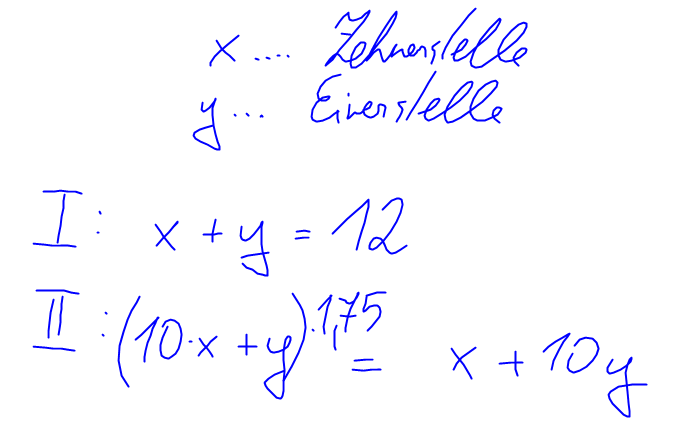 x .... Zehnerstelle
y ... Einerstelle
I: x + y = 12
II: (10·x + y)·1,75 = x + 10y